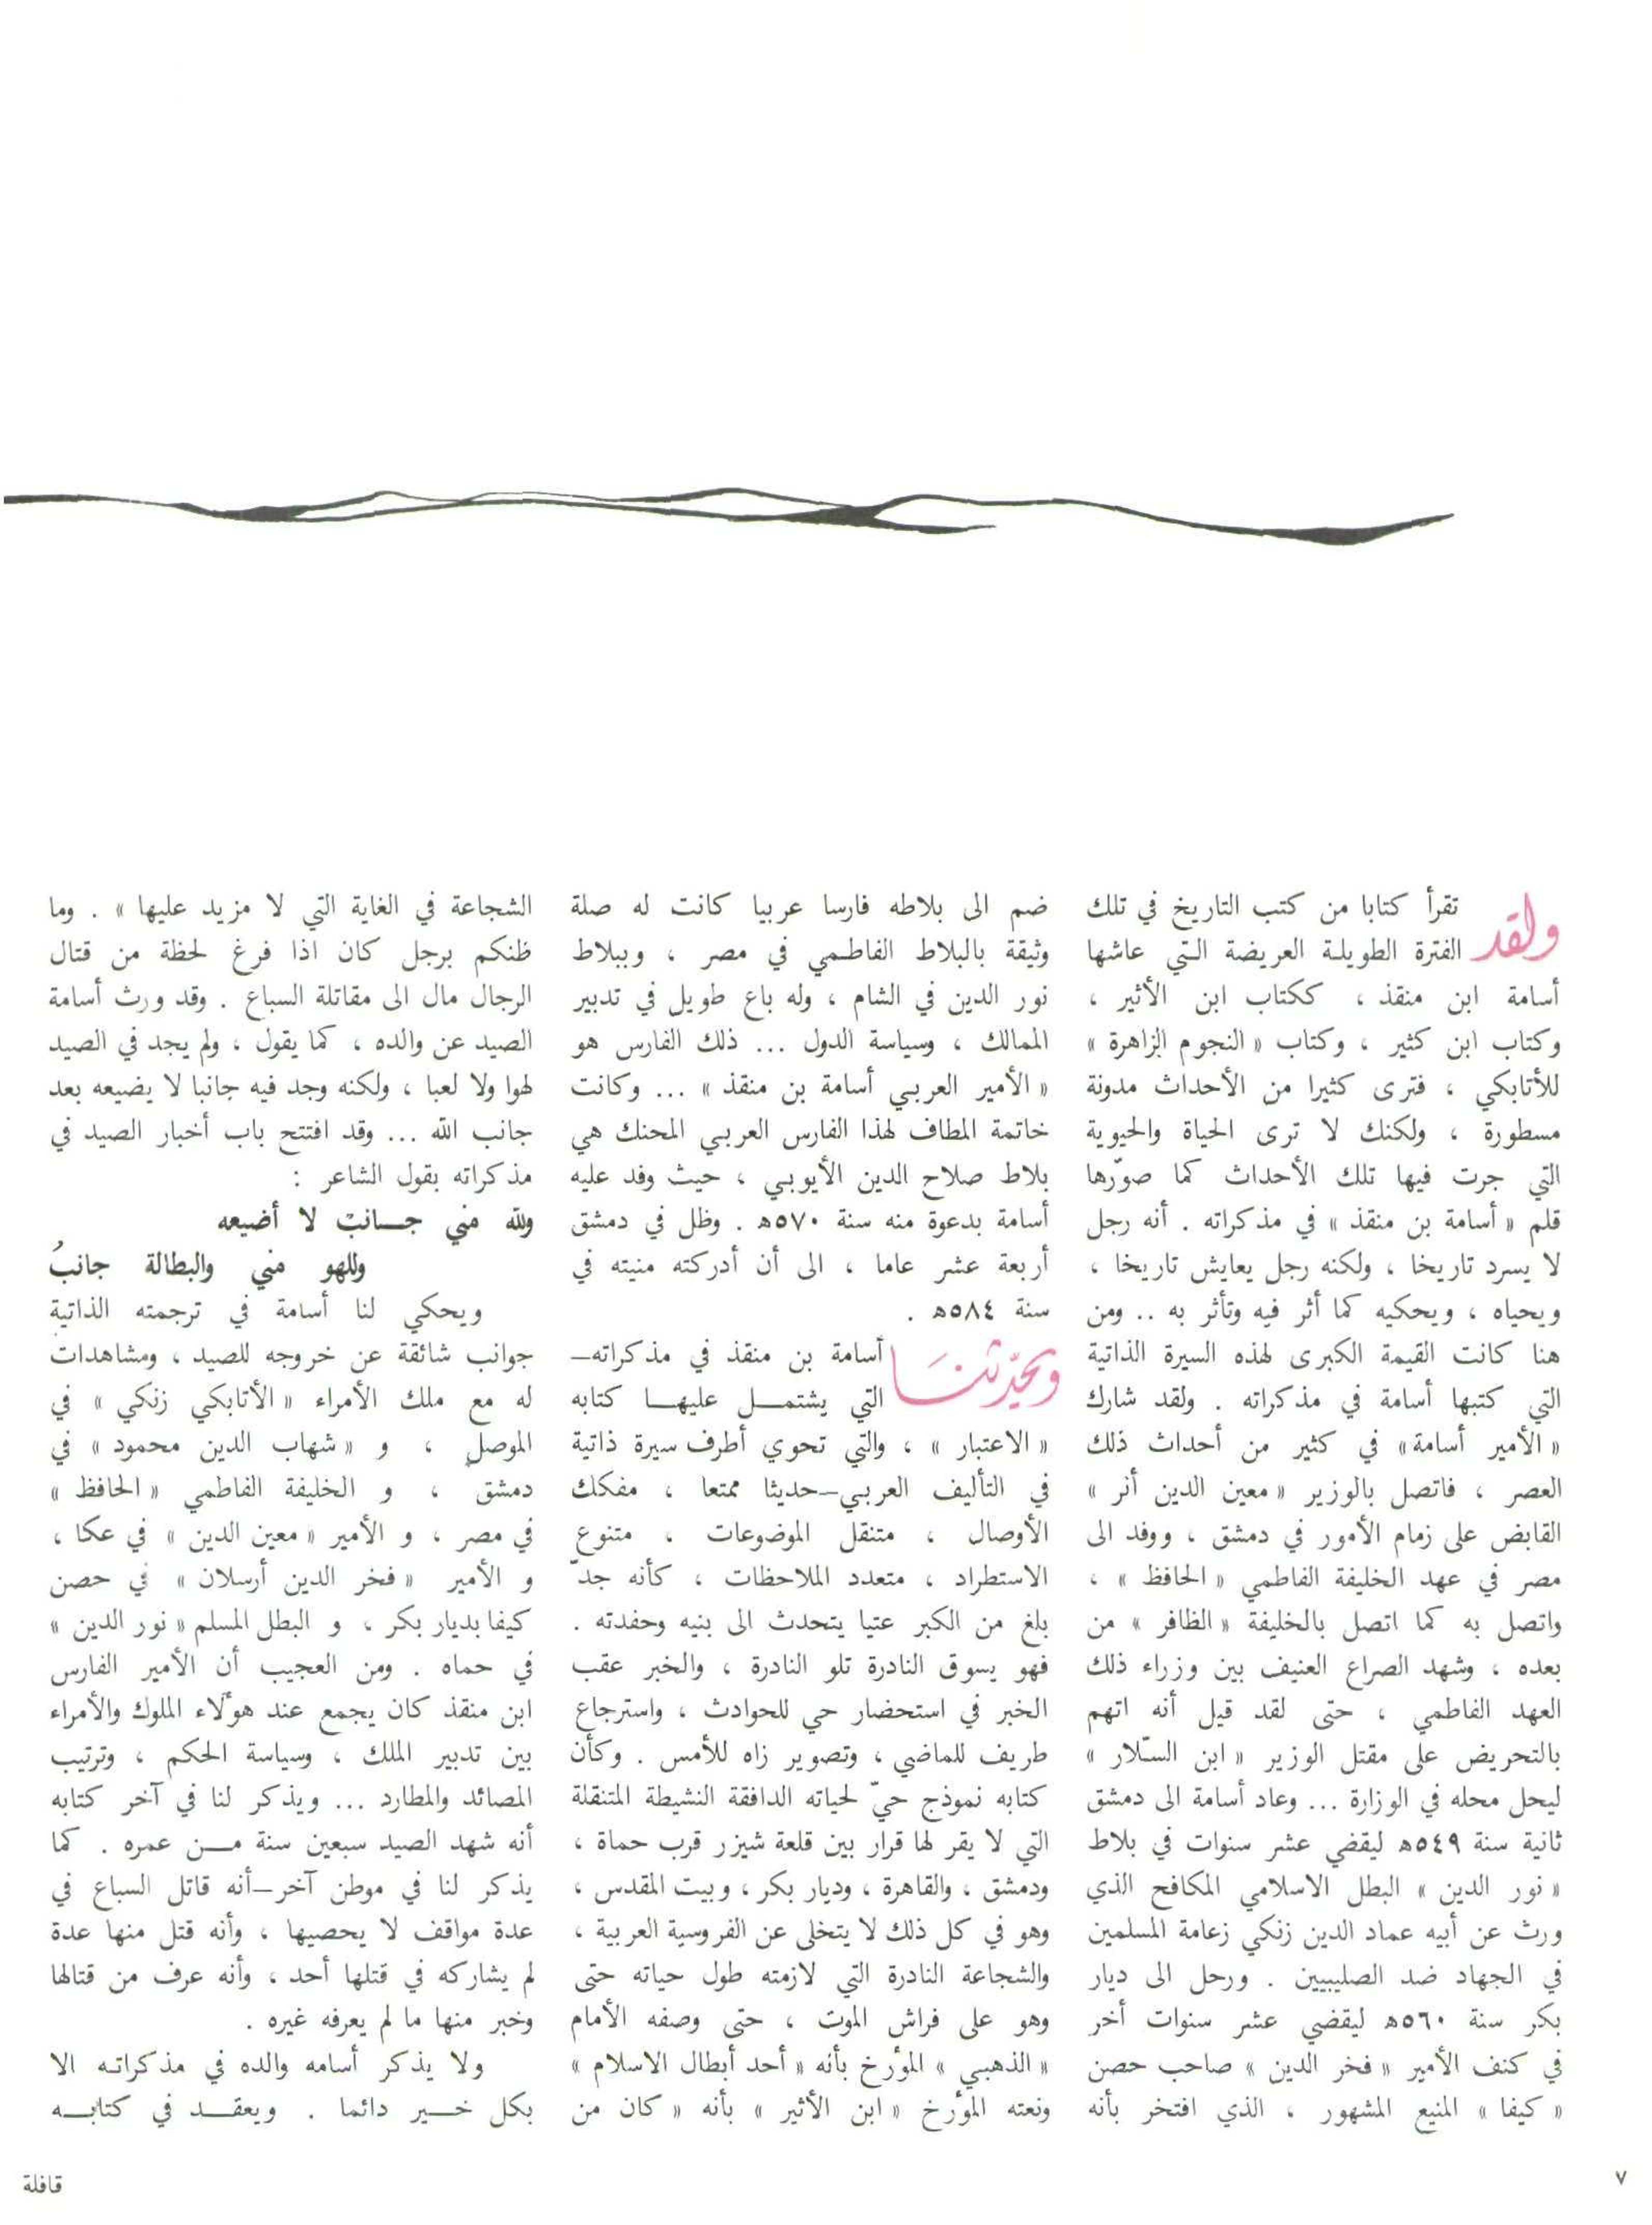 ولقد تقرأ كتابا من كتب التاريخ في تلك
الفترة الطويلة العريضة التي عاشها
أسامة ابن منقذ ، ككتاب ابن الأثير ،
وكتاب ابن كثير ، وكتاب « النجوم الزاهرة »
للأتابكي ، فترى كثيرا من الأحداث مدونة
مسطورة ، ولكنك لا ترى الحياة والحيوية
التي جرت فيها تلك الأحداث كما صوّرها
قلم « أسامة بن منقذ » في مذكراته . أنه رجل
لا يسرد تاريخا ، ولكنه رجل يعايش تاريخا ،
ويحياه ، ويحكيه كما أثر فيه وتأثر به .. ومن
هنا كانت القيمة الكبرى لهذه السيرة الذاتية
التي كتبها أسامة في مذكراته . ولقد شارك
« الأمير أسامة» في كثير من أحداث ذلك
العصر ، فاتصل بالوزير « معين الدين أنر »
القابض على زمام الأمور في دمشق ، ووفد الى
مصر في عهد الخليفة الفاطمي « الحافظ » ،
واتصل به كما اتصل بالخليفة « الظافر » من
بعده ، وشهد الصراع العنيف بين وزراء ذلك
العهد الفاطمي ، حتى لقد قيل أنه اتهم
بالتحريض على مقتل الوزير « ابن السّلار »
ليحل محله في الوزارة ... وعاد أسامة الى دمشق
ثانية سنة ٥٤٩ه ليقضي عشر سنوات في بلاط
« نور الدين » البطل الاسلامي المكافح الذي
ورث عن أبيه عماد الدين زنكي زعامة المسلمين
في الجهاد ضد الصليبيين . ورحل الى ديار
بكر سنة ٥٦٠ه ليقضي عشر سنوات أخر
في كنف الأمير « فخر الدين » صاحب حصن
« كيفا » المنيع المشهور ، الذي افتخر بأنه
ضم الى بلاطه فارسا عربيا كانت له صلة
وثيقة بالبلاط الفاطمي في مصر ، وببلاط
نور الدين في الشام ، وله باع طويل في تدبير
الممالك ، وسياسة الدول ... ذلك الفارس هو
« الأمير العربي أسامة بن منقذ » ... وكانت
خاتمة المطاف لهذا الفارس العربي المحنك هي
بلاط صلاح الدين الأيوبي ، حيث وفد عليه
أسامة بدعوة منه سنة ٥٧٠ه . وظل في دمشق
أربعة عشر عاما ، الى أن أدركته منيته في
سنة ٥٨٤ه .
ويحدّثنَا أسامة بن منقذ في مذكراته–
التي يشتمل عليها كتابه
« الاعتبار » ، والتي تحوي أطرف سيرة ذاتية
في التأليف العربي–حديثا ممتعا ، مفكك
الأوصال ، متنقل الموضوعات ، متنوع
الاستطراد ، متعدد الملاحظات ، كأنه جدّ
بلغ من الكبر عتيا يتحدث الى بنيه وحفدته .
فهو يسوق النادرة تلو النادرة ، والخبر عقب
الخبر في استحضار حي للحوادث ، واسترجاع
طريف للماضي ، وتصوير زاه للأمس . وكأن
كتابه نموذج حيّ لحياته الدافقة النشيطة المتنقلة
التي لا يقر لها قرار بين قلعة شيزر قرب حماة ،
ودمشق ، والقاهرة ، وديار بكر ، وبيت المقدس ،
وهو في كل ذلك لا يتخلى عن الفروسية العربية ،
والشجاعة النادرة التي لازمته طول حياته حتى
وهو على فراش الموت ، حتى وصفه الأمام
« الذهبي » المؤرخ بأنه « أحد أبطال الاسلام »
ونعته المؤرخ « ابن الأثير » بأنه « كان من
الشجاعة في الغاية التي لا مزيد عليها » . وما
ظنكم برجل كان اذا فرغ لحظة من قتال
الرجال مال الى مقاتلة السباع . وقد ورث أسامة
الصيد عن والده ، كما يقول ، ولم يجد في الصيد
لهوا ولا لعبا ، ولكنه وجد فيه جانبا لا يضيعه بعد
جانب الله ... وقد افتتح باب أخبار الصيد في
مذكراته بقول الشاعر :
ولله مني جانب لا أضيعه
وللهو مني والبطالة جانبُ
ويحكي لنا أسامة في ترجمته الذاتية
جوانب شائقة عن خروجه للصيد ، ومشاهدات
له مع ملك الأمراء « الأتابكي زنكي » في
الموصل ، و « شهاب الدين محمود » في
دمشق ، و الخليفة الفاطمي « الحافظ »
في مصر ، و الأمير « معين الدين » في عكا ،
و الأمير « فخر الدين أرسلان » في حصن
كيفا بديار بكر ، و البطل المسلم « نور الدين »
في حماه . ومن العجيب أن الأمير الفارس
ابن منقذ كان يجمع عند هؤلاء الملوك والأمراء
بين تدبير الملك ، وسياسة الحكم ، وترتيب
المصائد والمطارد ... ويذكر لنا في آخر كتابه
أنه شهد الصيد سبعين سنة من عمره . كما
يذكر لنا في موطن آخر–أنه قاتل السباع في
عدة مواقف لا يحصيها ، وأنه قتل منها عدة
لم يشاركه في قتلها أحد ، وأنه عرف من قتالها
وخبر منها ما لم يعرفه غيره .
ولا يذكر أسامه والده في مذكراته الا
بكل خير دائما . ويعقد في كتابه
٧
قافلة